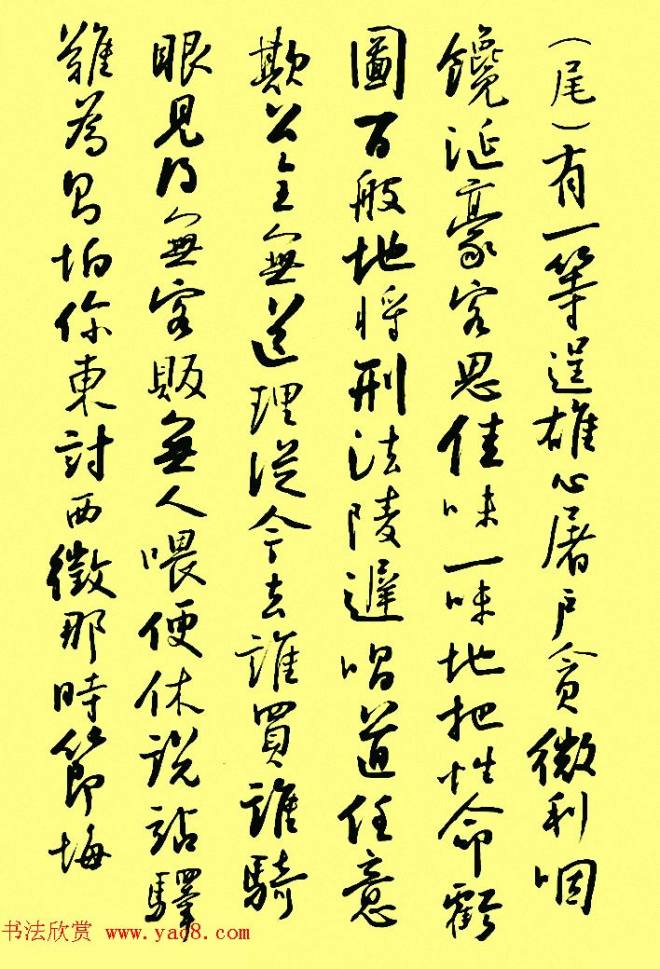 （尾）有一等逞雄心屠戶貪微利咽
饞涎豪客思佳味一味地把性命虧
圖百般地將刑法陵遲唱道任意
欺公全無道理從今去誰買誰騎
眼見得無客販無人喂便休說站驛
難為則怕你東討西徵那時節悔
书法欣赏 www.yac8.com